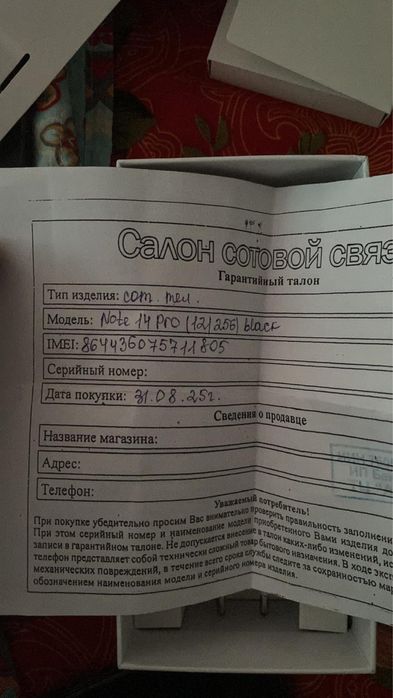 Салон сотовой связ
Гарантийный талон
Тип изделия: сот. тел.
Модель: Note 14 Pro (12/256) black
IMEI: 864436075711805
Серийный номер:
Дата покупки: 31.08.25г.
Сведения о продавце
Название магазина:
Адрес:
Телефон:
Уважаемый потребитель!
При покупке убедительно просим Вас внимательно проверить правильность заполнени
При этом серийный номер и наименование модели приобретенного Вами изделия до
записи в гарантийном талоне. Не допускается внесение в талон каких-либо изменений, ис
телефон представляет собой технически сложный товар бытового назначения. В ходе экс
механических повреждений, в течение всего срока службы следите за сохранностью мар
обозначением наименования модели и серийного номера изделия.